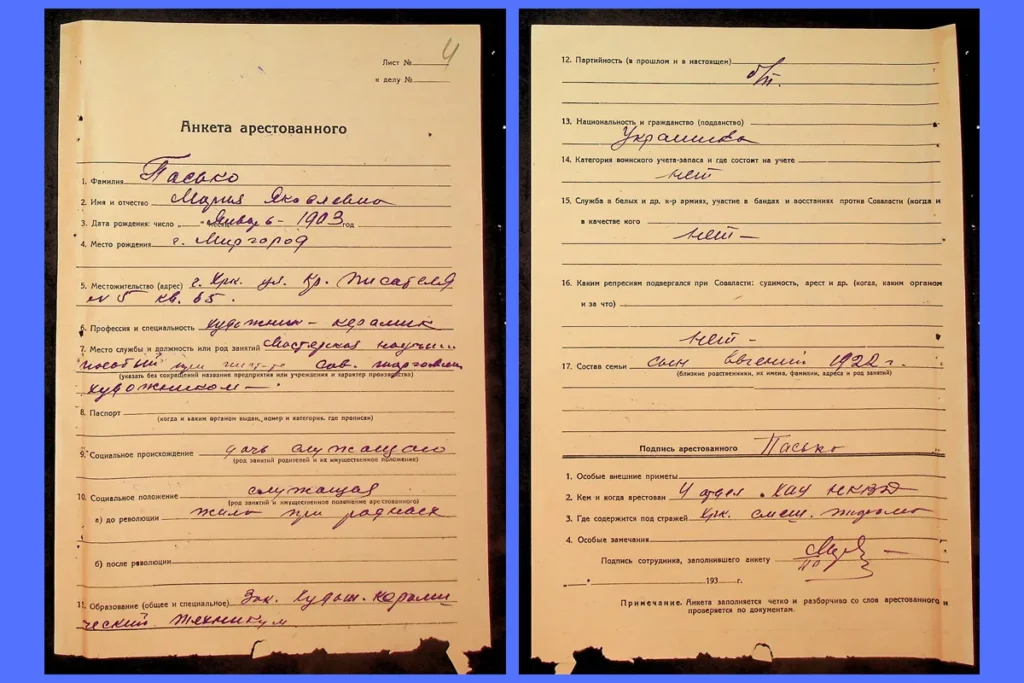 4
Лист №
к делу №
Анкета арестованного
1. Фамилия Пасько
2. Имя и отчество Мария Яковлевна
3. Дата рождения: число „ “ месяц Январь – 1903 год
4. Место рождения г. Миргород
5. Местожительство (адрес) г. Хрк. ул. Кр. Писателя
№ 5 кв. 65.
6. Профессия и специальность художник – керамик
7. Место службы и должность или род занятий Мастерская научных
пособий при сов. торговли
(указать без сокращений название предприятия или учреждения и характер производства)
художником –
8. Паспорт
(когда и каким органом выдан, номер и категория, где прописан)
9. Социальное происхождение дочь служащего
(род занятий родителей и их имущественное положение)
10. Социальное положение служащая
(род занятий и имущественное положение арестованного)
а) до революции жила при родных
б) после революции
11. Образование (общее и специальное) Зак. Худож. Керами
ческий техникум
12. Партийность (в прошлом и в настоящем)
б/п.
13. Национальность и гражданство (подданство)
Украинка
14. Категория воинского учета-запаса и где состоит на учете
нет
15. Служба в белых и др. к-р армиях, участие в бандах и восстаниях против Соввласти (когда и
в качестве кого)
нет –
16. Каким репресиям подвергался при Соввласти: судимость, арест и др. (когда, каким органом
и за что)
нет –
17. Состав семьи сын Евгений 1922 г.
(близкие родственники, их имена, фамилии, адреса и род занятий)
Подпись арестованного Пасько
1. Особые внешние приметы
2. Кем и когда арестован 4 отдел. ХОУ НКВД
3. Где содержится под стражей Хрк. спец. тюрьма
4. Особые замечания
Подпись сотрудника, заполнившего анкету
„ “ 193 г.
Примечание. Анкета заполняется четко и разборчиво со слов арестованного и
проверяется по документам.